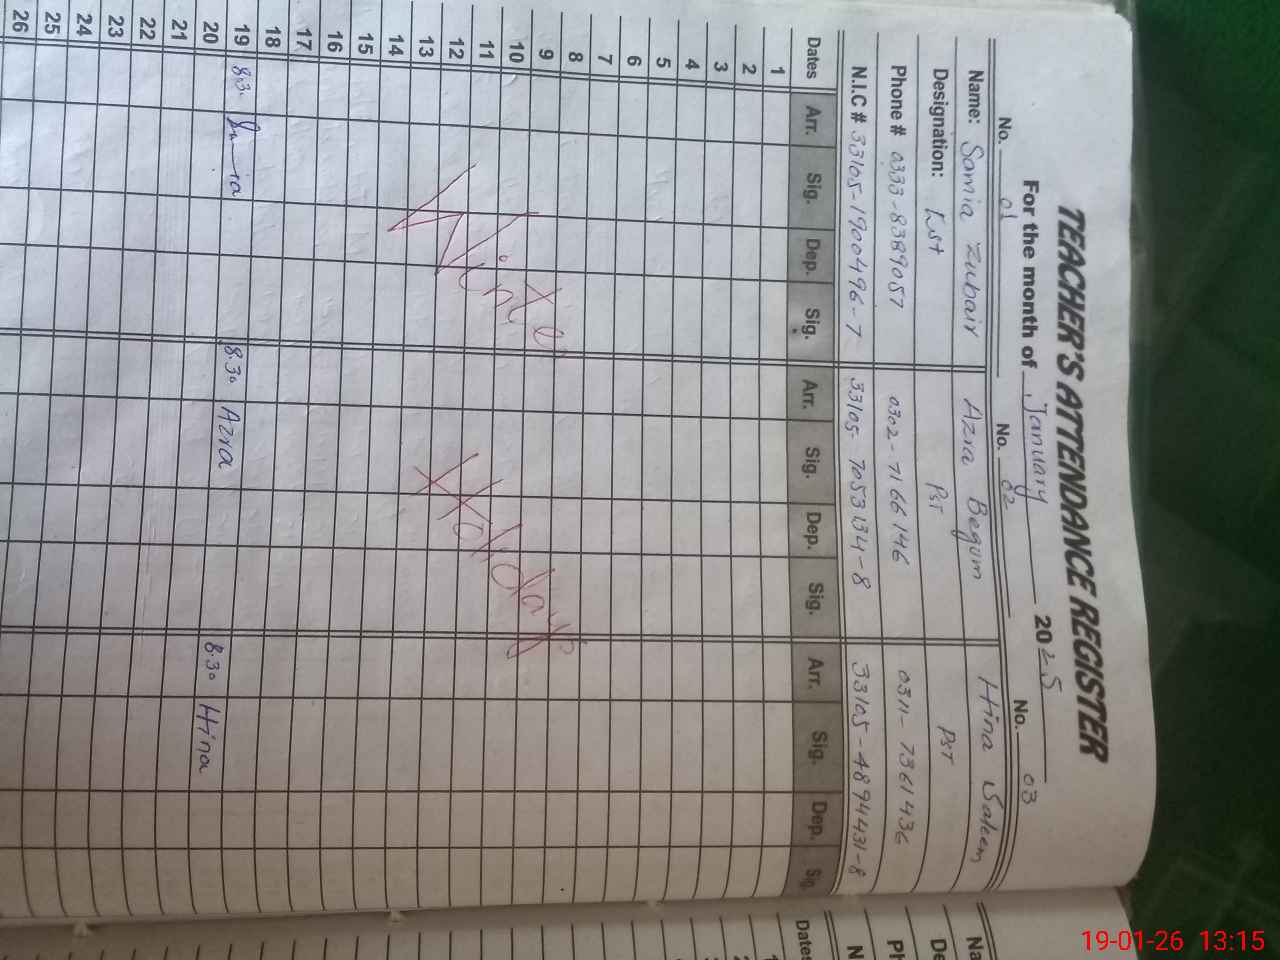 TEACHER'S ATTENDANCE REGISTER
For the month of January 2025
No. 01 No. 02 No. 03
Name: Samia Zubair Azra Begum Hina Saleem
Designation: PST PST
Phone # 0333-8389057 0302-7166146 0311-7361436
N.I.C # 33105-1900496-7 33105-7053134-8 33105-4894431-8
Dates Arr. Sig. Dep. Sig. Arr. Sig. Dep. Sig. Arr. Sig. Dep. Sig.
1
2
3
4
5
6
7
8
9
10
11
12
13
14
15
16
17
18
19 8.30 8.30 Azra 8.30 Hina
20
21
22
23
24
25
26
Winter Holidays
Dates
19-01-26 13:15